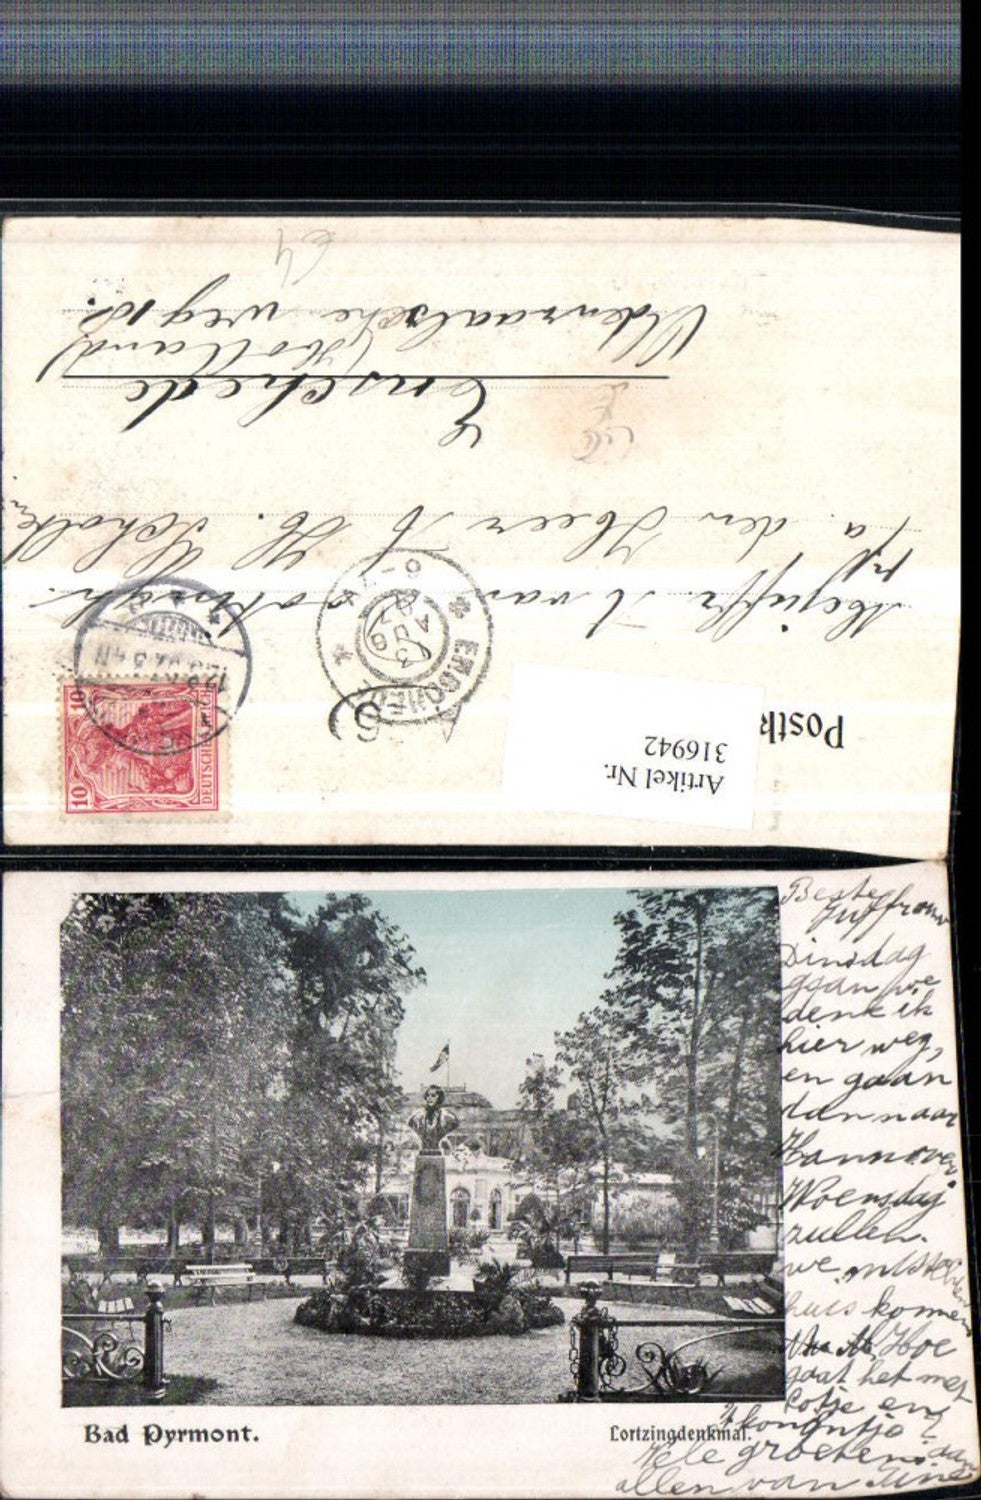 Postk
Artikel Nr.
316942
DEUTSCHES REICH
10
10
ENSCHEDE
13 AUG
6-7
6
Mejuffr. A van
p/a den Heer H. Scholten
Enschede
(Holland)
Oldenzaalsche weg 18.
64
Beste Juffrouw
Dinsdag
gaan we
denk ik
hier weg,
en gaan
dan naar
Hannover.
Woensdag
zullen
we
huis komen
Hoe
gaat het met
Lotje en
't konijntje?
Vele groeten aan
allen van
Bad Pyrmont.
Lortzingdenkmal.